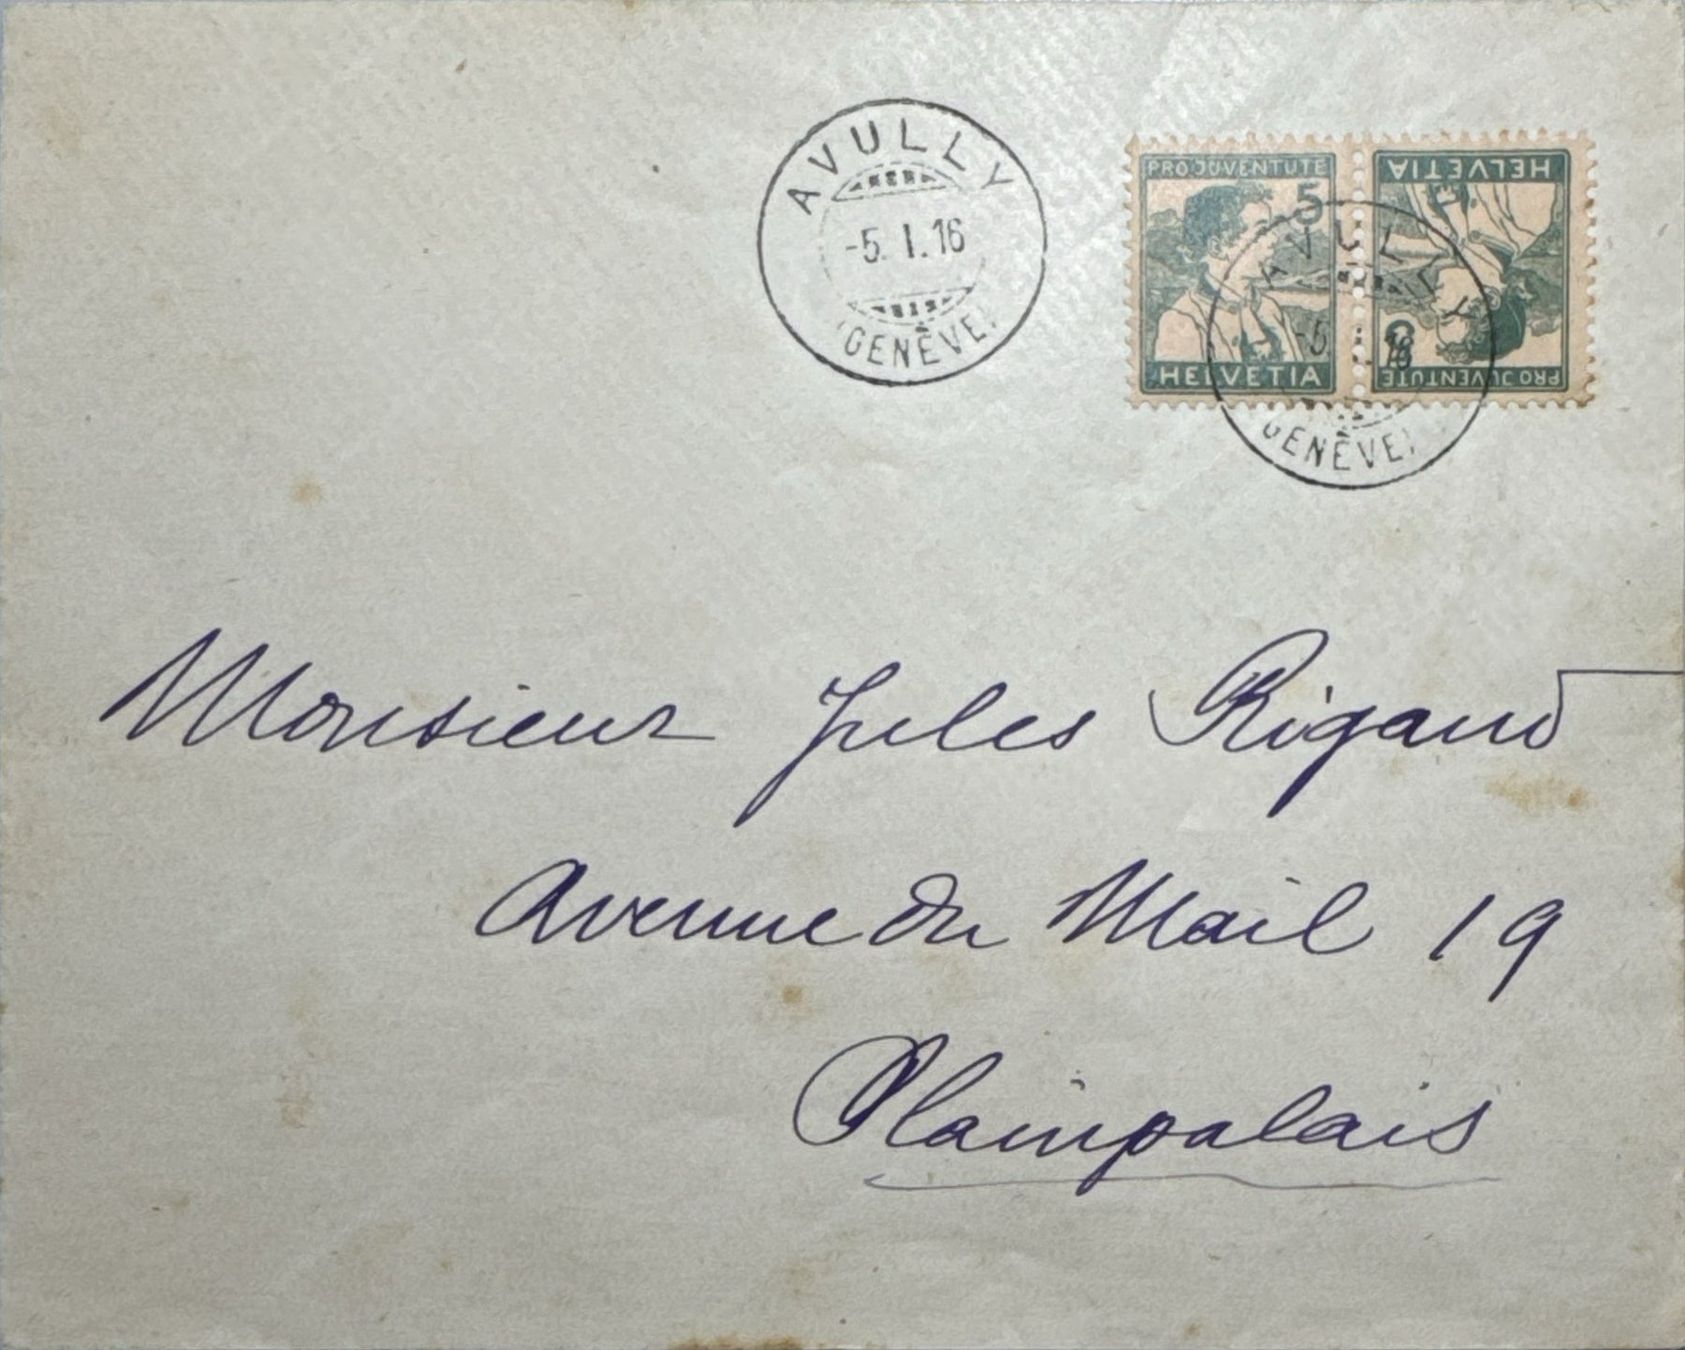 AVULLY
-5. I. 16
(GENÈVE)
PRO JUVENTUTE
5
HELVETIA
HELVETIA
PRO JUVENTUTE
AVULLY
-5. I. 16
(GENÈVE)
Monsieur Jules Rigaud
Avenue du Mail 19
Plainpalais